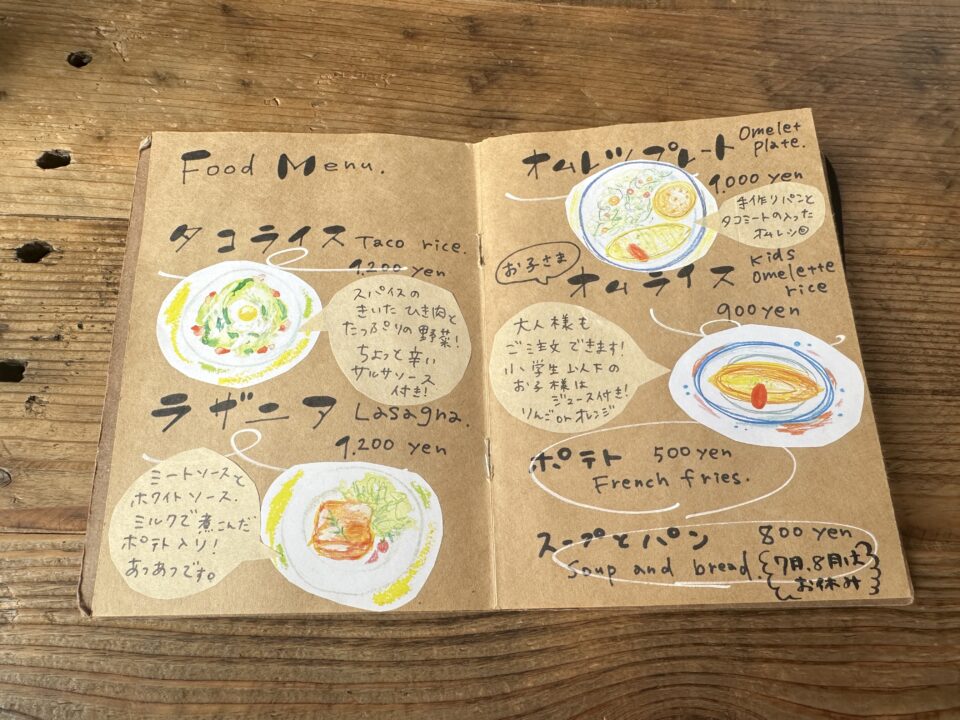 Food Menu.
タコライス Taco rice.
1.200 yen
スパイスの
きいた ひき肉と
たっぷりの野菜!
ちょっと辛い
サルサソース
付き!
ラザニア Lasagna.
1.200 yen
ミートソースと
ホワイトソース.
ミルクで煮こんだ
ポテト入り!
あつあつです。
オムレツプレート Omelet
plate.
1.000 yen
手作りパンと
タコミートの入った
オムレツ
お子さま
オムライス Kids
Omelette
rice
900 yen
大人様も
ご注文できます!
小学生以下の
お子様は
ジュース付き!
りんごorオレンジ
ポテト 500 yen
French fries.
スープとパン 800 yen
Soup and bread.
7月.8月は
お休み